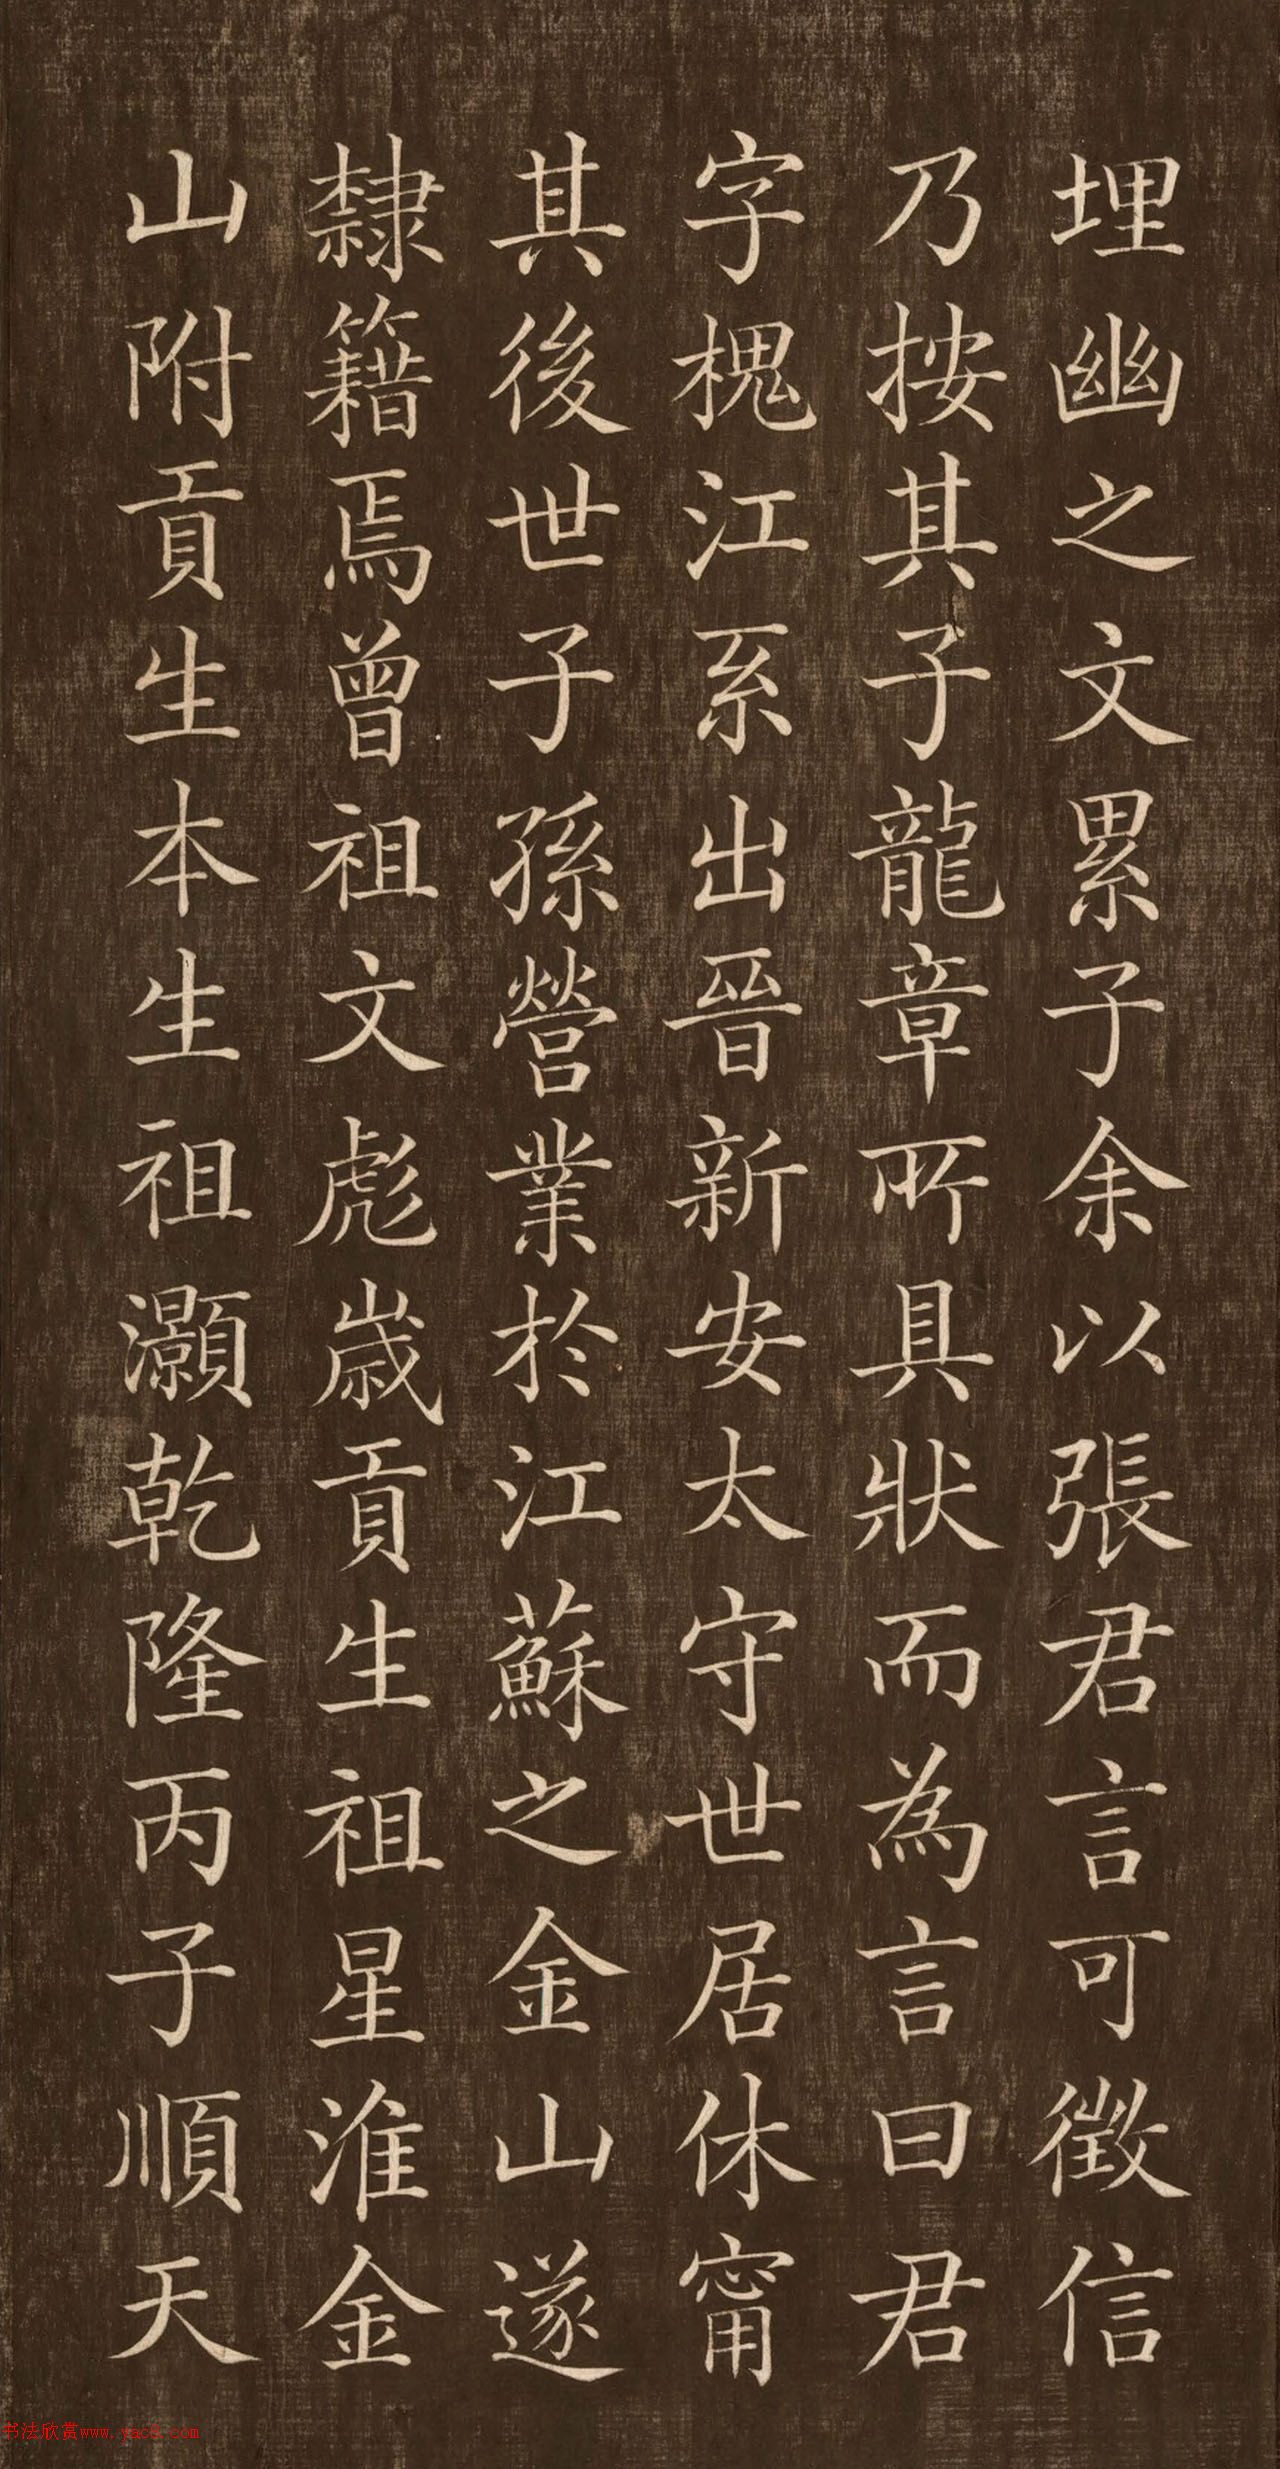 埋幽之文累子余以張君言可徵信
乃按其子龍章所具狀而為言曰君
字槐江系出晉新安太守世居休甯
其後世子孫營業於江蘇之金山遂
隸籍焉曾祖文彪歲貢生祖星淮金
山附貢生本生祖灝乾隆丙子順天
书法欣赏www.yac8.com